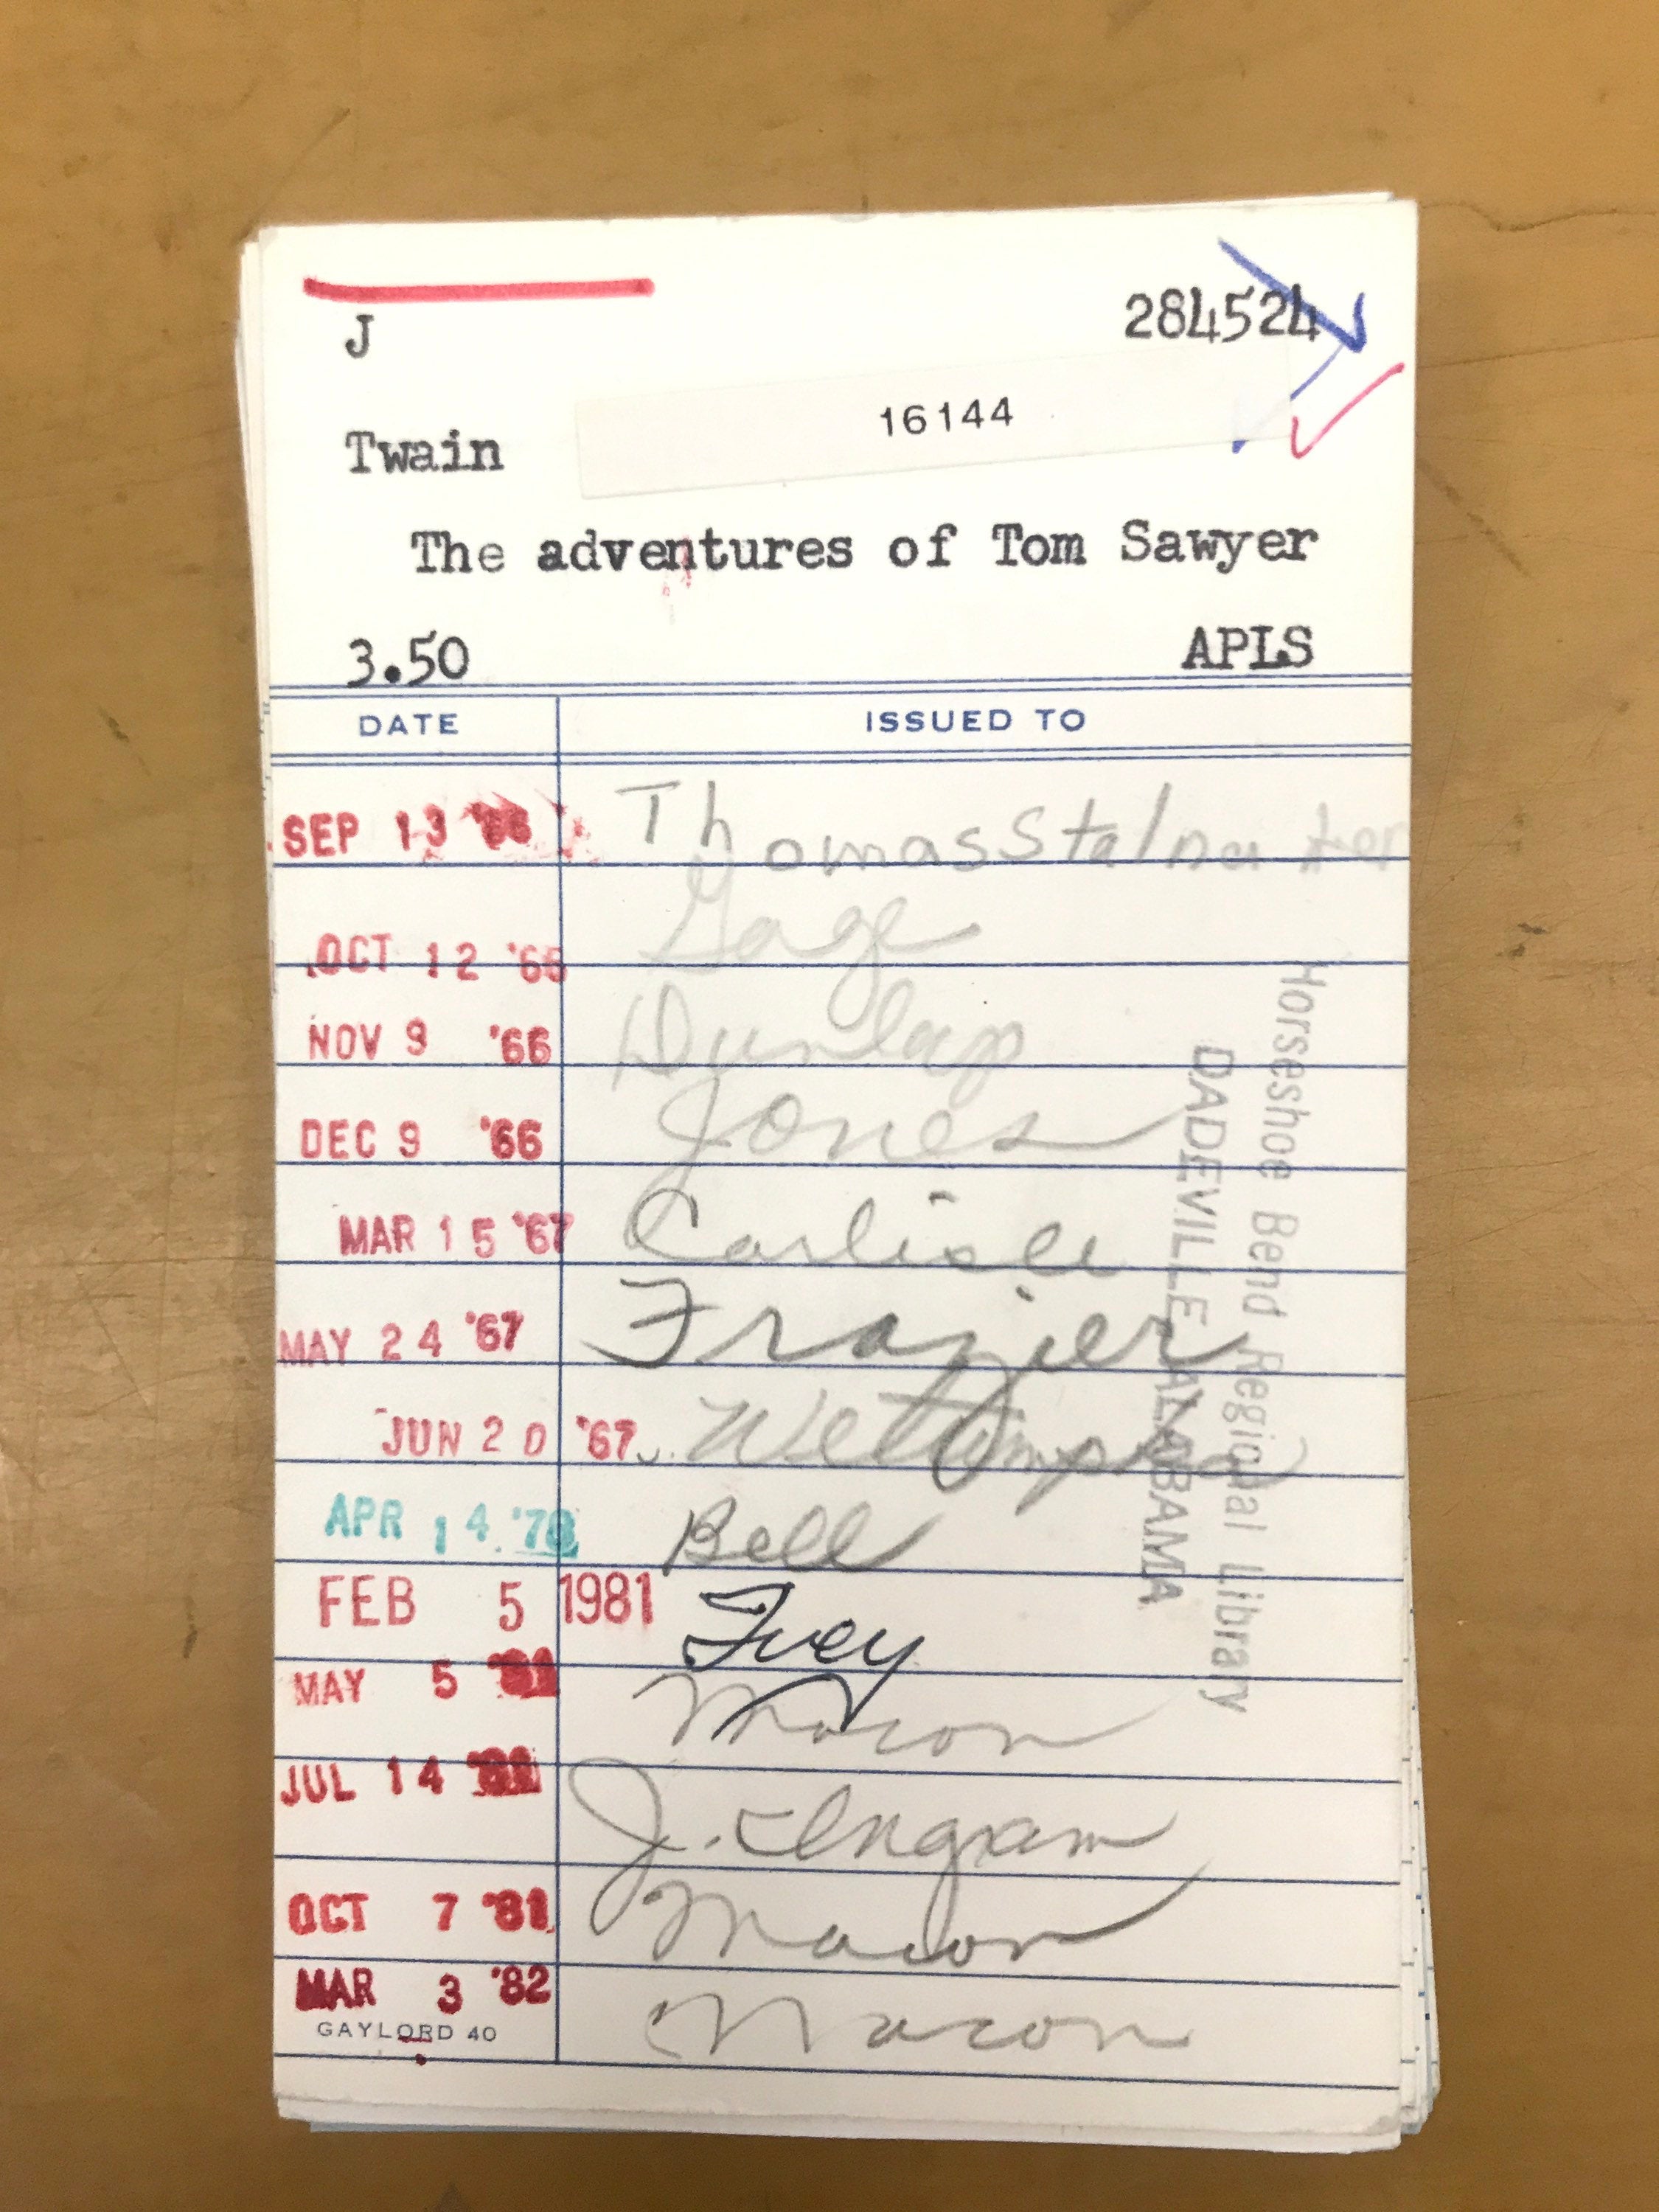 J 284524
16144
Twain
The adventures of Tom Sawyer
3.50 APLS
DATE ISSUED TO
SEP 13 Thomas
OCT 12 '66 Gage
NOV 9 '66 Dunlap
DEC 9 '66 Jones
MAR 15 '67 Carlisle
MAY 24 '67 Frazier
JUN 20 '67
APR 14 '78 Bell
FEB 5 1981 Ivey
MAY 5 '81 Macon
JUL 14 '81 J. Ingram
OCT 7 '81 Macon
MAR 3 '82 Macon
GAYLORD 40
Horseshoe Bend Regional Library
DADEVILLE ALABAMA